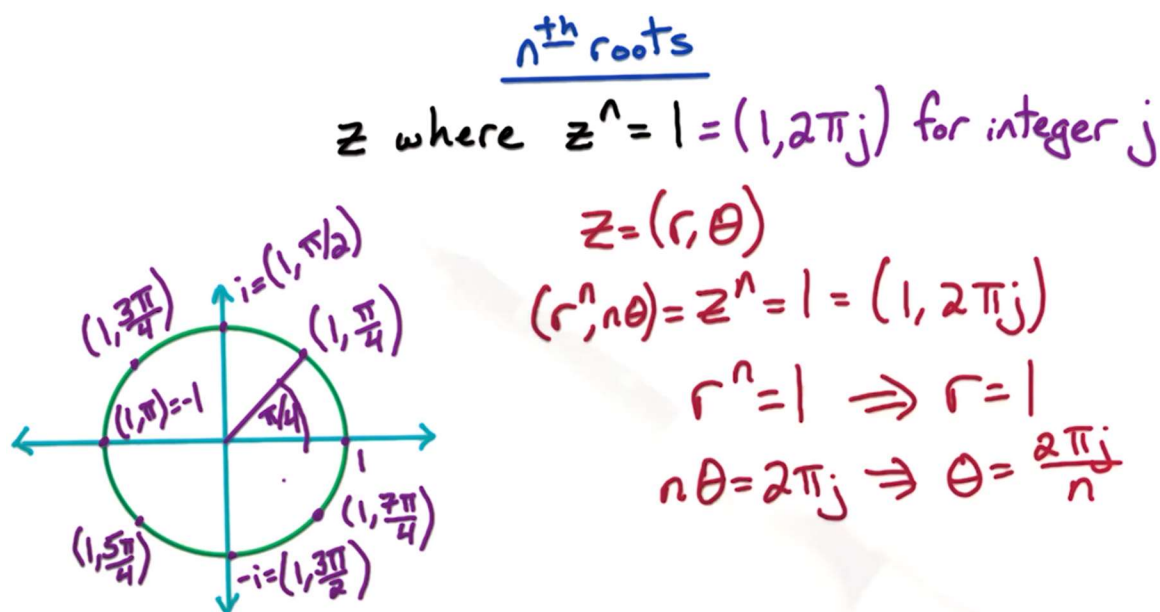 nth roots
z where z^n = 1 = (1, 2πj) for integer j
z = (r, θ)
(r^n, nθ) = z^n = 1 = (1, 2πj)
r^n = 1 ⇒ r = 1
nθ = 2πj ⇒ θ = 2πj/n
i = (1, π/2)
(1, 3π/4)
(1, π/4)
(1, π) = -1
π/4
1
(1, 7π/4)
(1, 5π/4)
-i = (1, 3π/2)